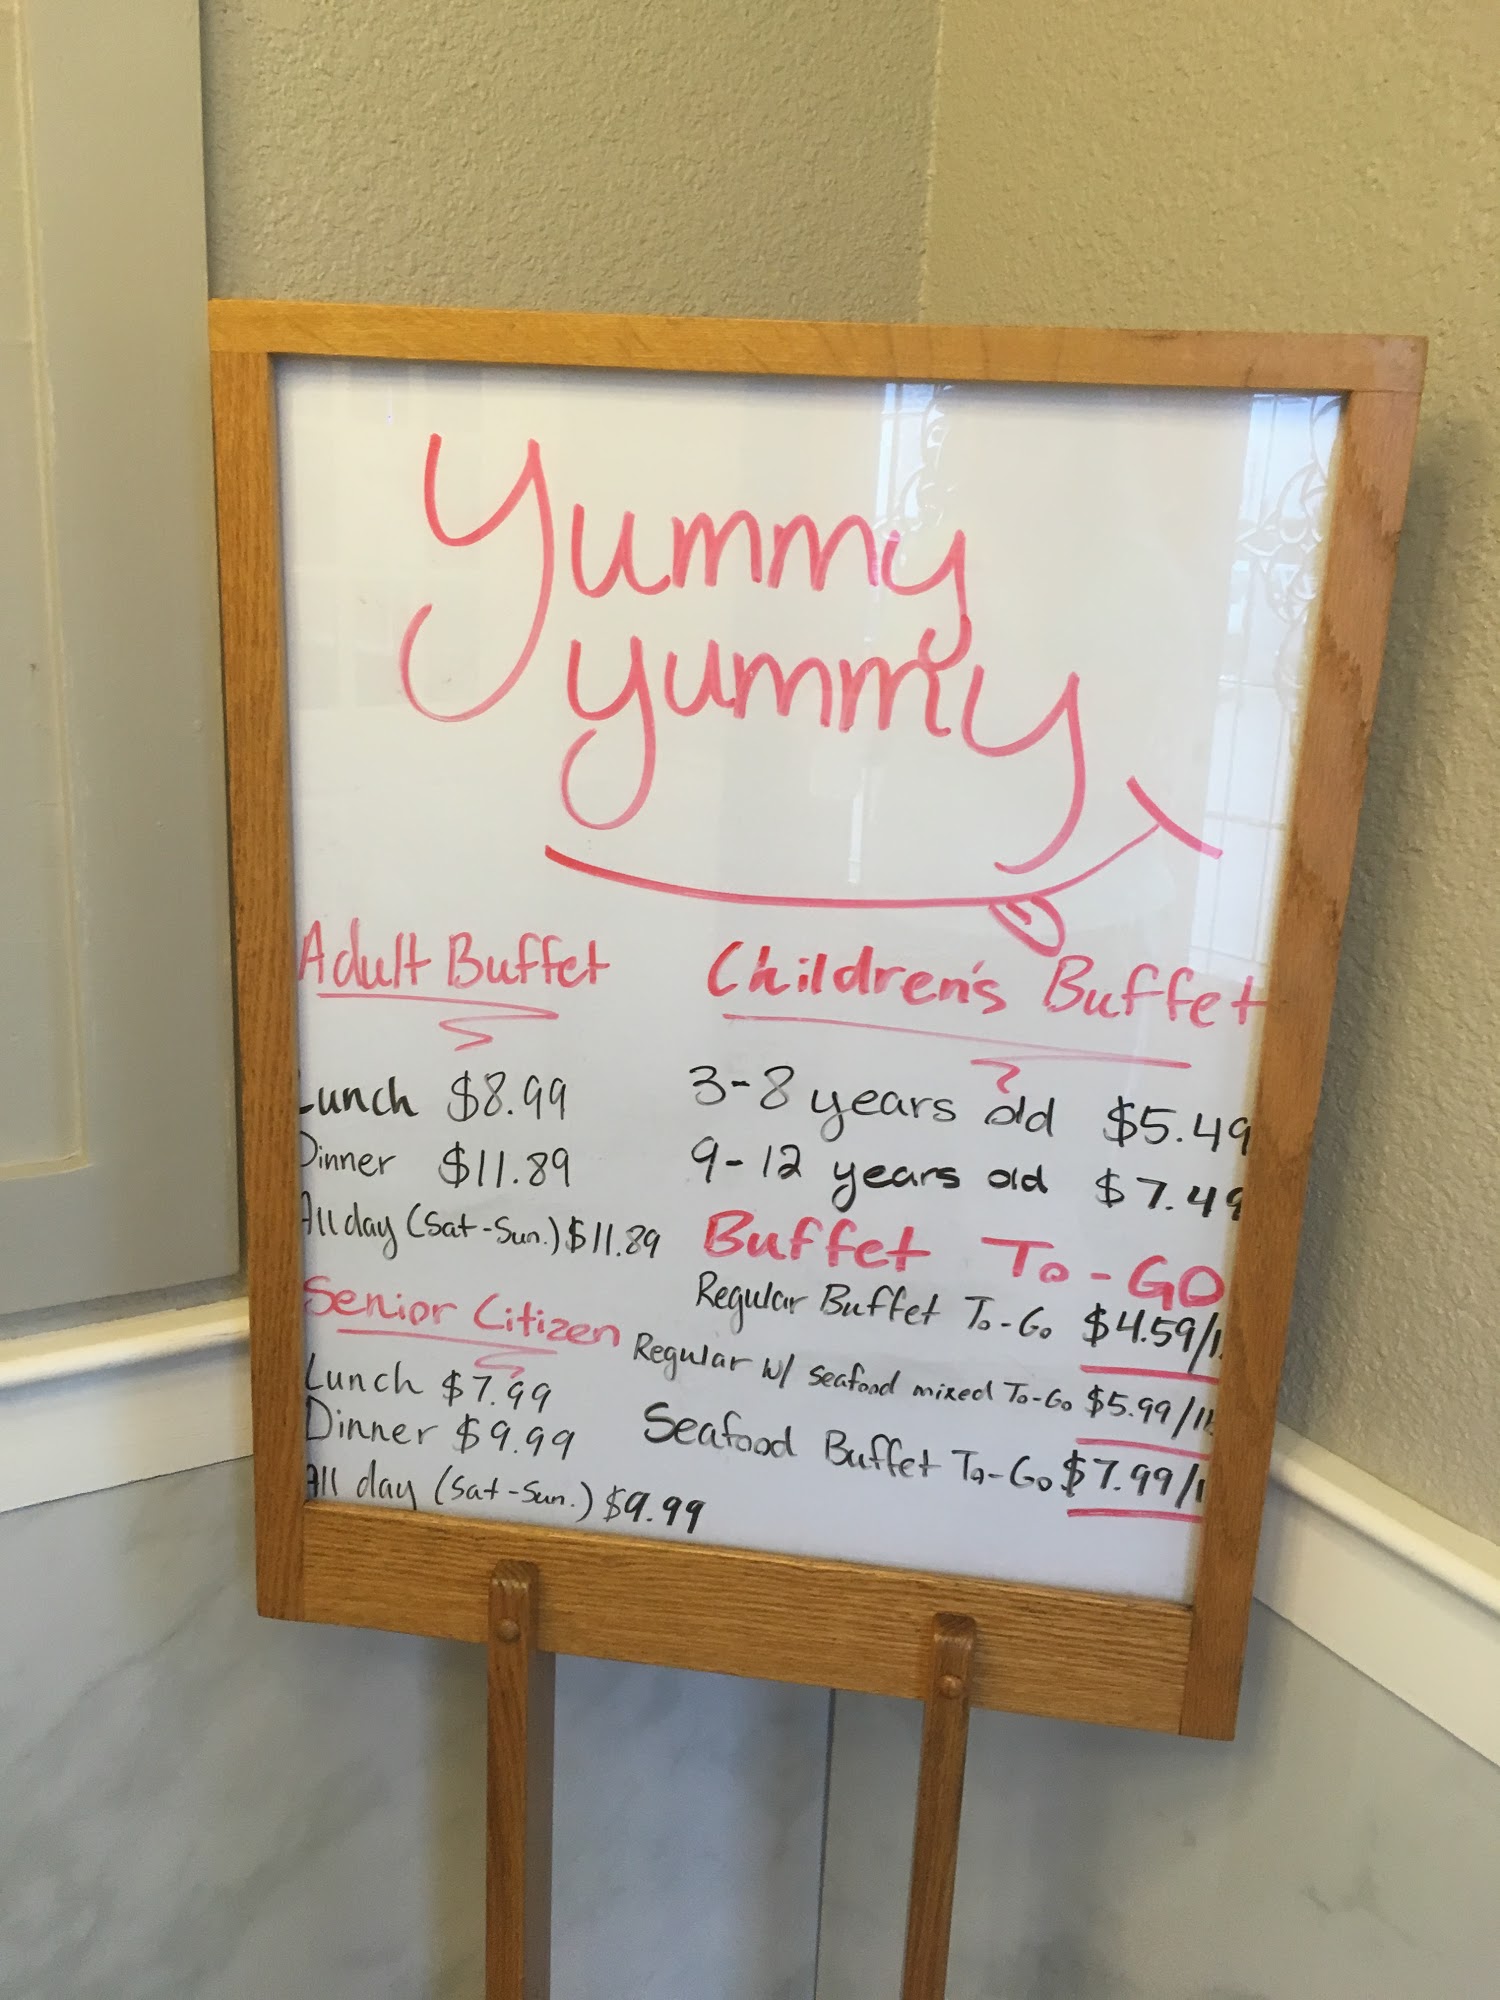 Yummy
yummy
Adult Buffet
Lunch $8.99
Dinner $11.89
All day (Sat-Sun.) $11.89
Senior Citizen
Lunch $7.99
Dinner $9.99
All day (Sat-Sun.) $9.99
Children's Buffet
3-8 years old $5.49
9-12 years old $7.49
Buffet To-GO
Regular Buffet To-Go $4.59/l
Regular w/ seafood mixed To-Go $5.99/lb
Seafood Buffet To-Go $7.99/l